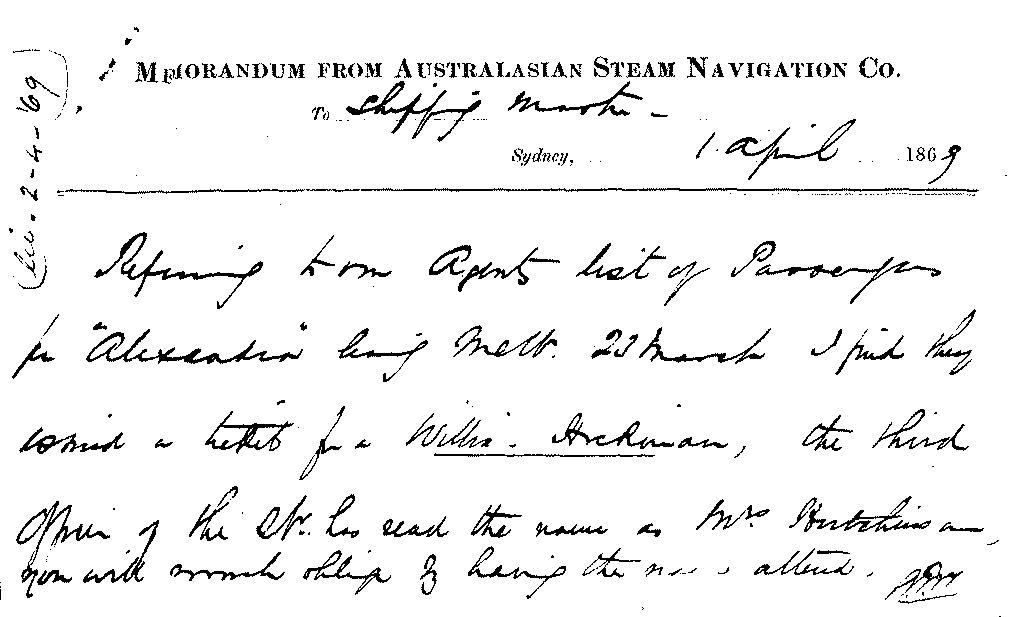 MEMORANDUM FROM AUSTRALASIAN STEAM NAVIGATION CO.
To Shipping Master -
Sydney, 1 April 1869
2-4-69
Referring to our Agents list of Passengers
for "Alexandra" leaving Melb. 23 March I find they
issued a ticket for a Willm. Hockman, the third
Officer of the Str. has read the name as Mrs Hutchinson,
you will much oblige by having the altered.